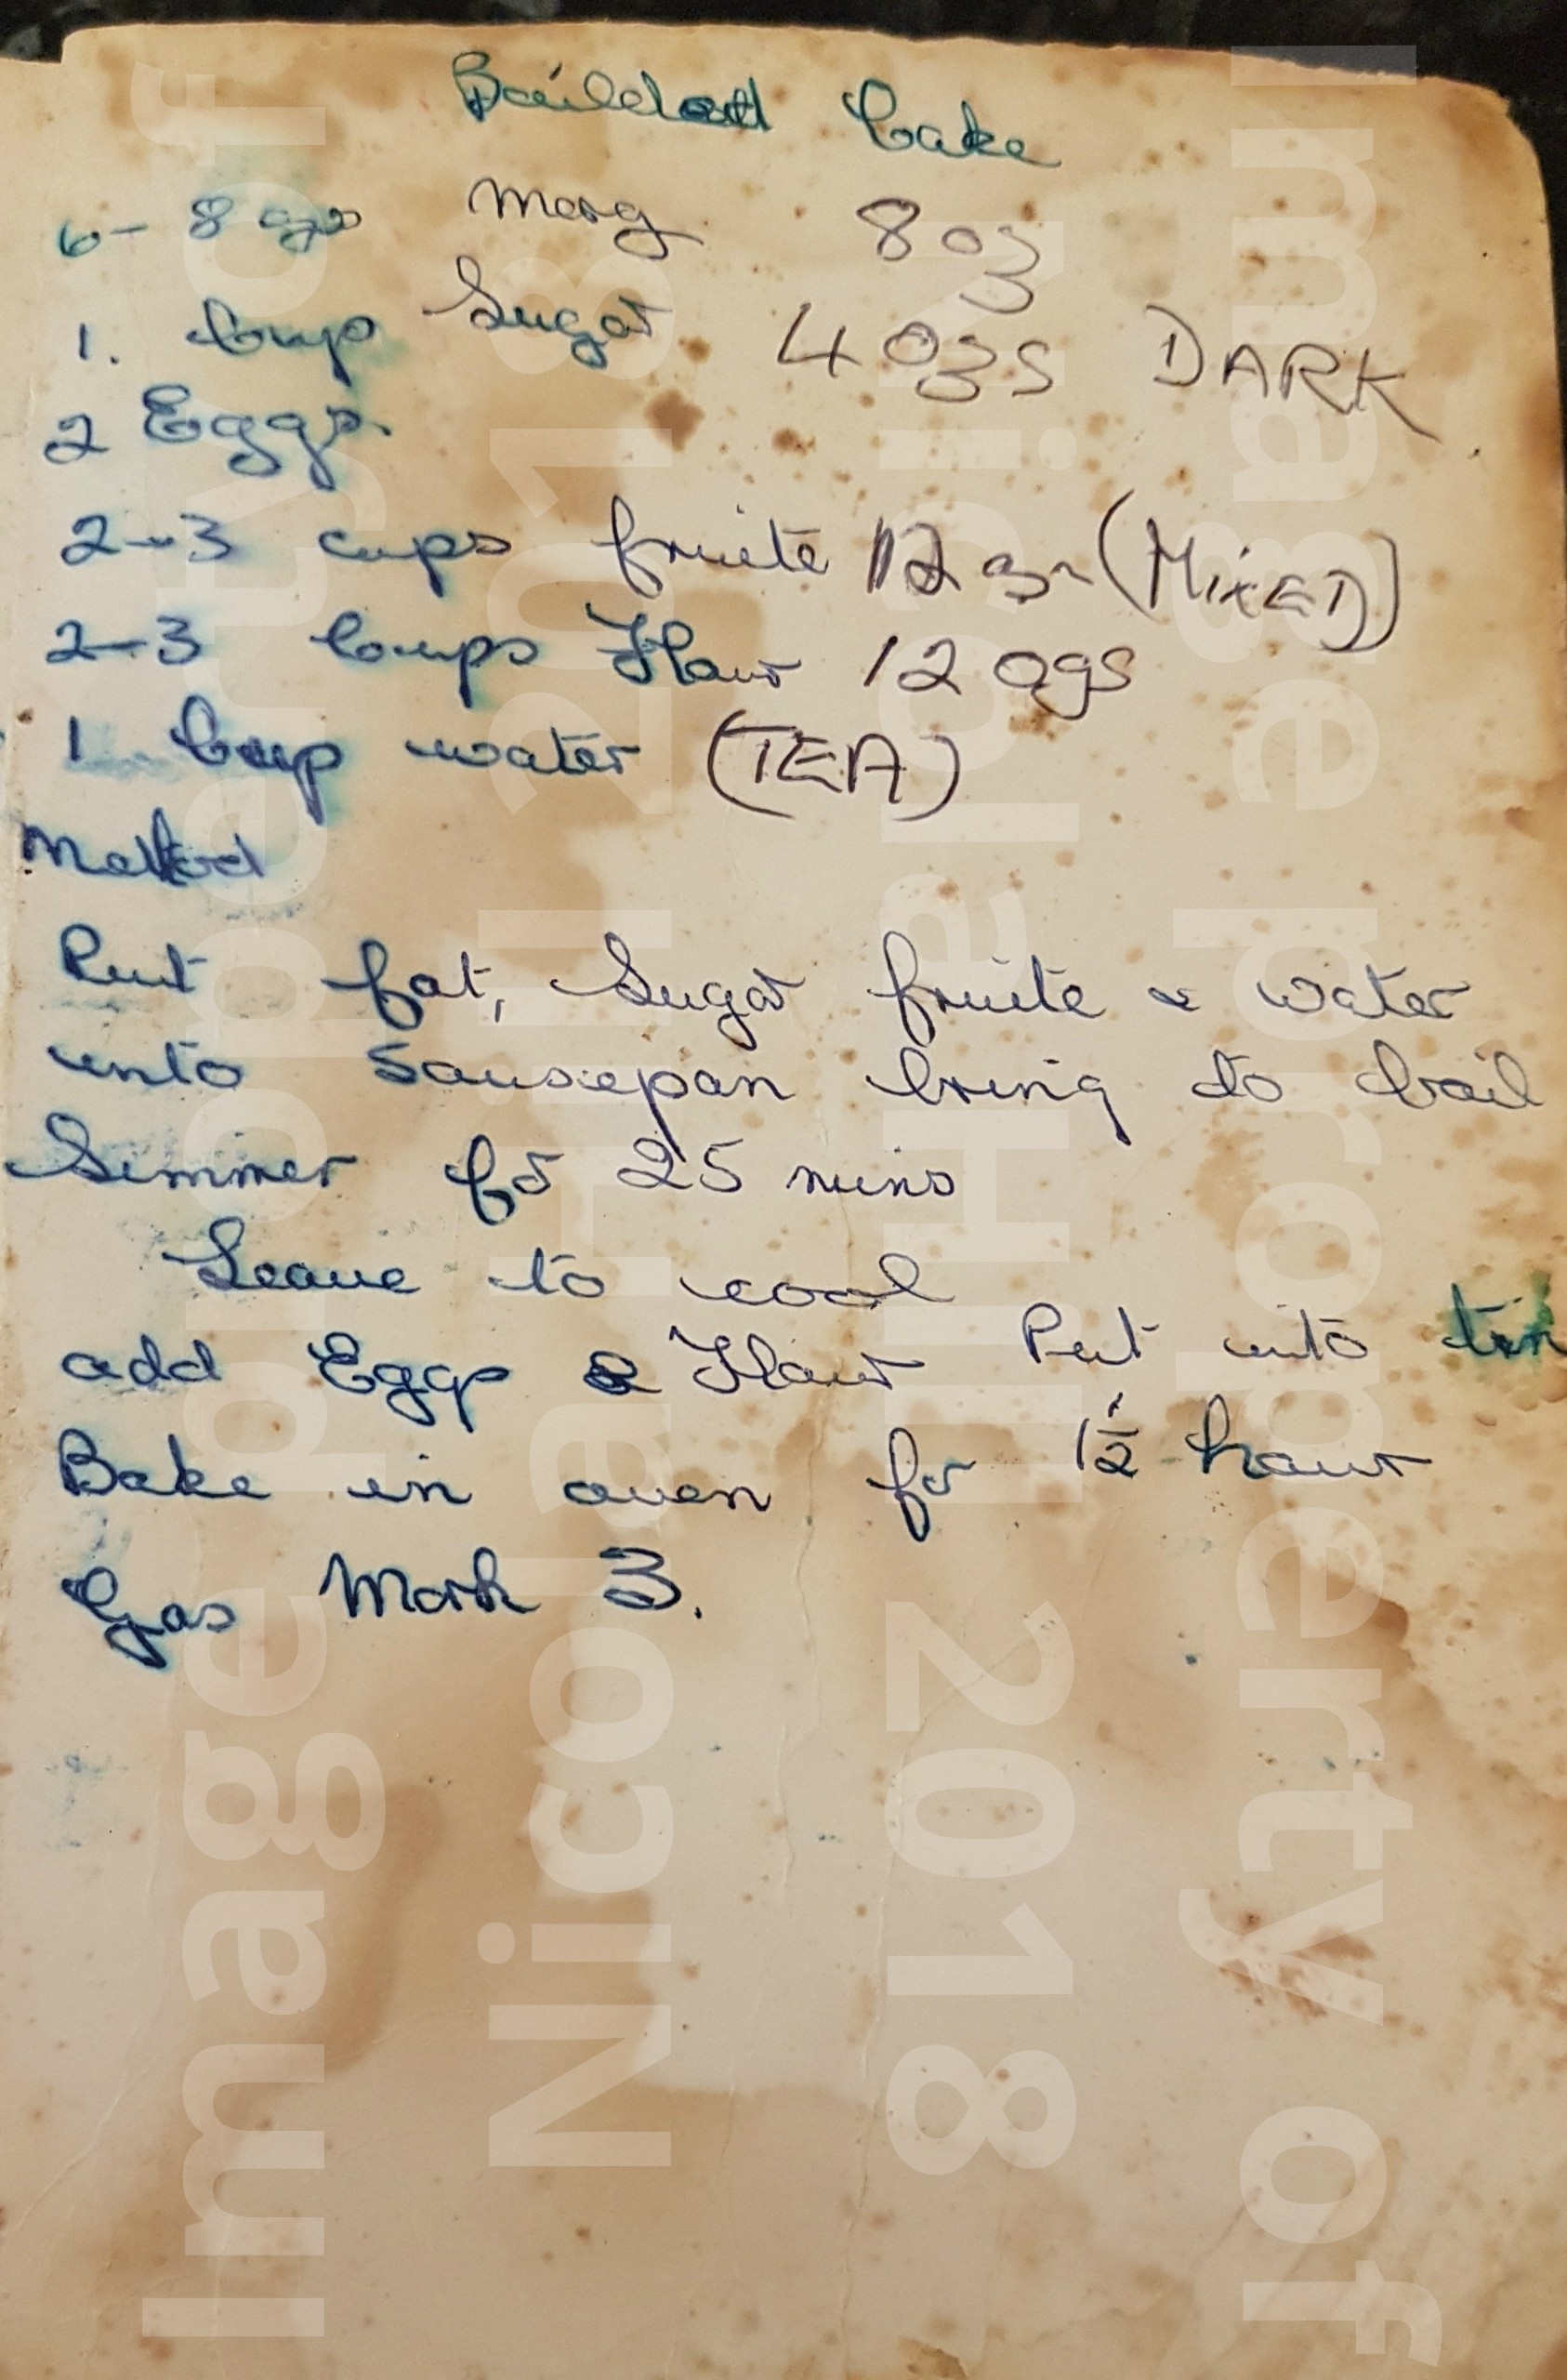 Boiled Cake
6-8 ozs Marg 8 oz
1. Cup Sugar 4 ozs DARK
2 Eggs.
2-3 cups fruite 12 oz (MIXED)
2-3 Cups Flour 12 ozs
1 Cup water (TEA)
Method
Put fat, Sugar fruite & water
into Saucepan bring to boil
Simmer for 25 mins
Leave to cool
add Eggs & Flour Put into tin
Bake in oven for 1½ hour
Gas Mark 3.
Image property of
Nicola Hill 2018
Nicola Hill 2018
Image property of